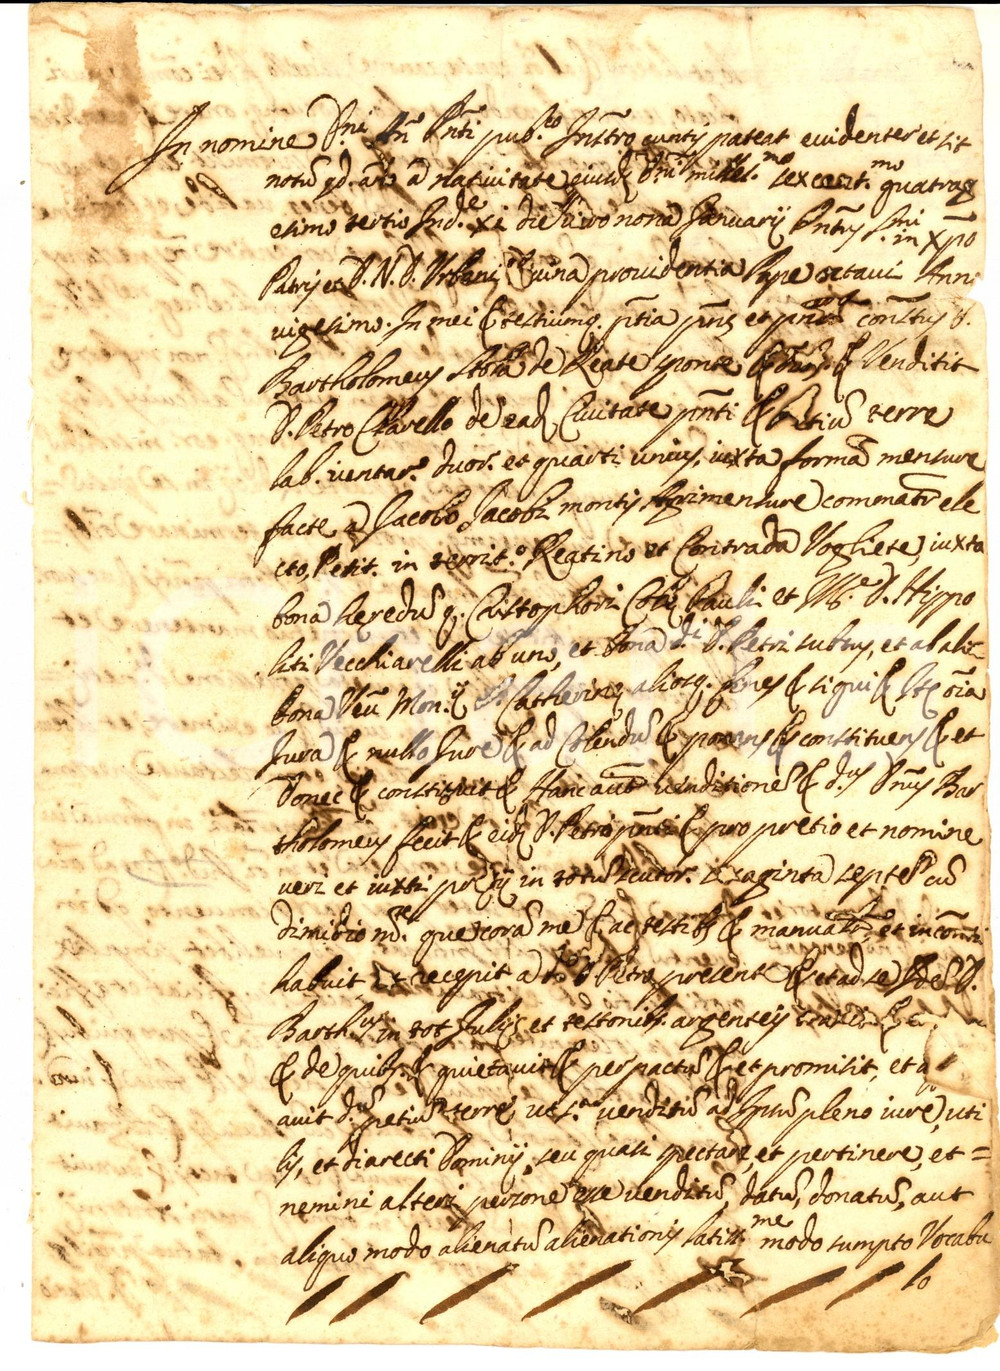 In nomine Dni. In Pnti pub.co Instro cuntis pateat evidenter et sit
notu qd. a nativitate eiusd Dni mill.mo sexcent.mo quatrag
esimo tertio Ind.e xi die vero nona Januarij Pntus S.mi in Xpo
Patris et D. N. D. Urbani divina providentia Pape octavi Anno
vigesimo. In mei & testiumq. ptia pns et constus D.
Bartholomeus de Reate sponte & Vendidit
D. Petro Clarello de ead Civitate pnti & Petiu terre
lab. iuntar. duor. et quarti unius, iuxta forma mensure
facte a Jacobo Jacobi montis Agrimensore ele
cto, Posit. in territ.o Reatino et Contrada Vogliete, iuxta
bona heredu q. Christophori Pauli et D. Hippo
liti Vecchiarelli ab uno, et bona d.i D. Petri subtus, et ab alio
bona Ven Mon.ij S. Catherine aliosq. fines & siqui & oia
Jura & nullo Jure & ad Colendu & ponens & constituens & et
Donec & constituit & Hanc aut venditione & d.us Dnus Bar
tholomeus fecit & eid D. Petro pnti & pro pretio et nomine
veri et iusti prtij in totu scutor. sexaginta septe cu
dimidio m. que cora me & ac testibs & manualr, et incontti
habuit et recepit a d.o D. Petro presente & et ad se D.
Barth.us in tot Julijs et testonib. argenteis &
& de quibs. & quietavit & per pactu & et promisit, et
avit d.u petiu terre ut s.a venditu ad Ipsu pleno iure, uti
lis, et directi Dominij, seu quasi spectare, et pertinere, et =
nemini alteri persone esse venditu, datu, donatu, aut
aliquo modo alienatu alienationis latiss.me modo sumpto Vocabu
lo